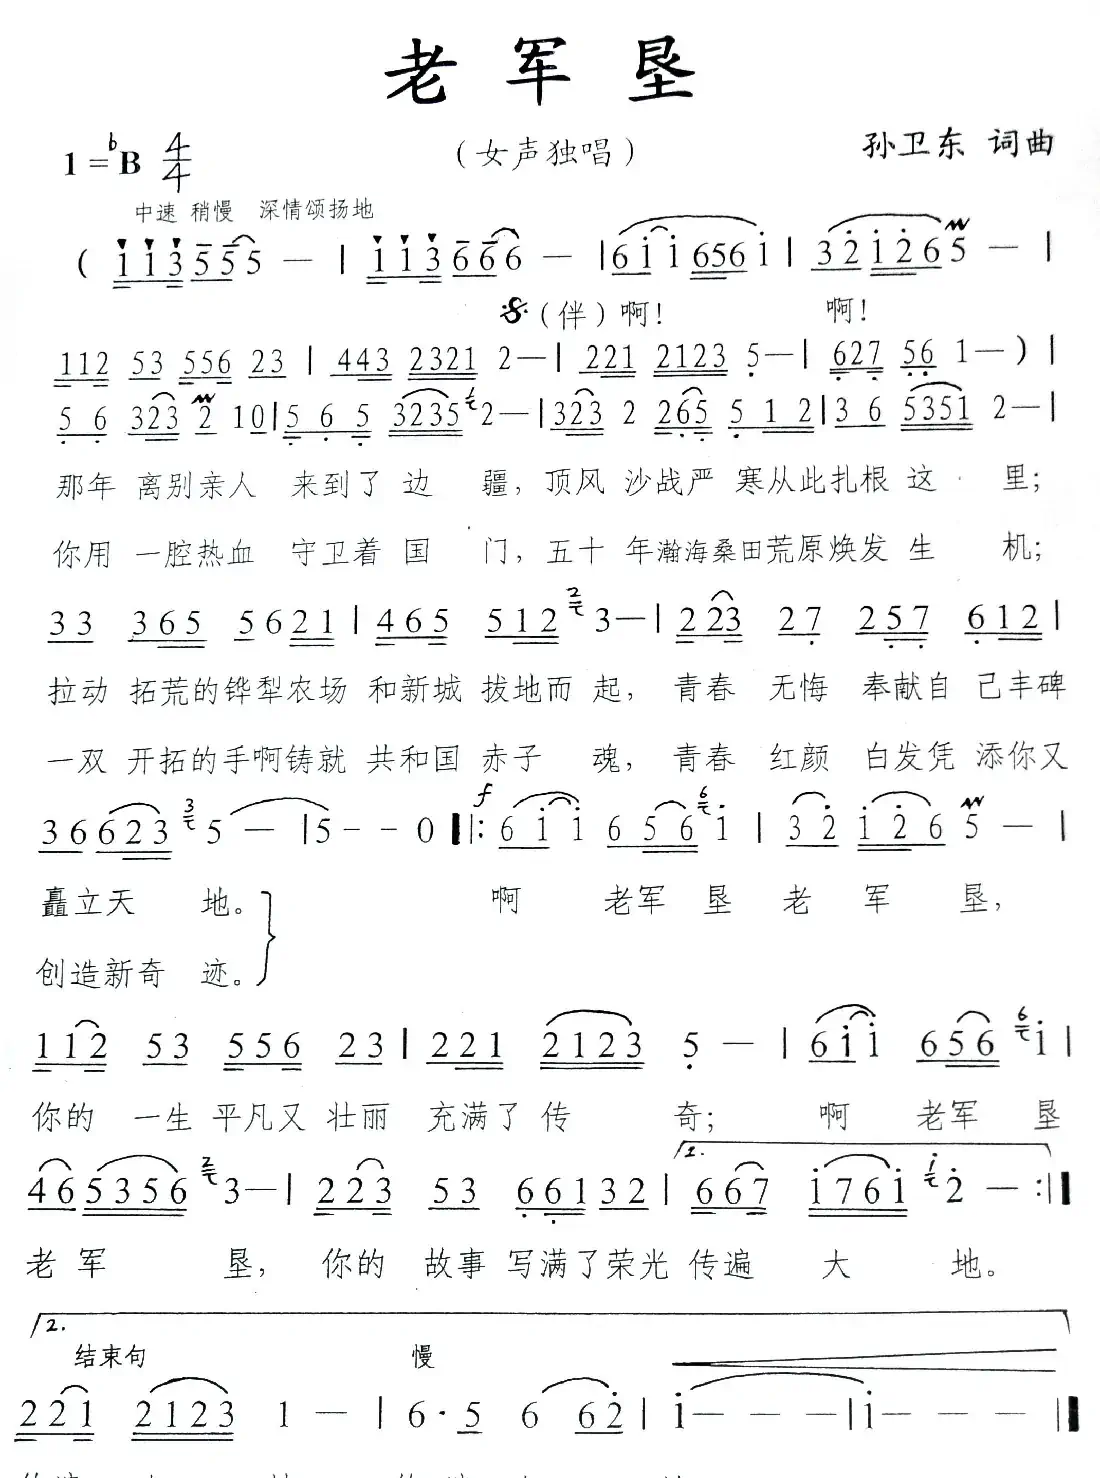 老军垦
1=♭B 4/4 （女声独唱） 孙卫东 词曲
中速 稍慢 深情颂扬地
( 113 555 — | 113 666 — | 6ii 656i | 32i265 — |
𝄋（伴）啊! 啊!
112 53 556 23 | 443 2321 2— | 221 2123 5— | 627 56 1—) |
56 323 2 10 | 5 6 5 3235 2— | 323 2 265 5 12 | 36 5351 2— |
那年 离别亲人 来到了 边 疆，顶风 沙战严 寒从此扎根 这 里；
你用 一腔热血 守卫着 国 门，五十 年瀚海桑田荒原焕发 生 机；
33 365 5621 | 465 512 3— | 223 27 257 612 |
拉动 拓荒的铧犁农场 和新城 拔地而 起，青春 无悔 奉献自 己丰碑
一双 开拓的手啊铸就 共和国 赤子 魂，青春 红颜 白发凭 添你又
f
36623 5 — | 5 - - 0 |: 6ii 656 i | 32 i26 5 — |
矗立天 地。 啊 老军 垦 老 军 垦，
创造新奇 迹。
112 53 556 23 | 221 2123 5 — | 6ii 656 i |
你的 一生 平凡又 壮丽 充满了 传 奇； 啊 老军 垦
1.
465356 3— | 223 53 66132 | 667 i76i 2 — :|
老 军 垦， 你的 故事 写满了荣光 传遍 大 地。
2.
结束句 慢
221 2123 1 — | 6·5 6 62 | i — — — | i — — — |